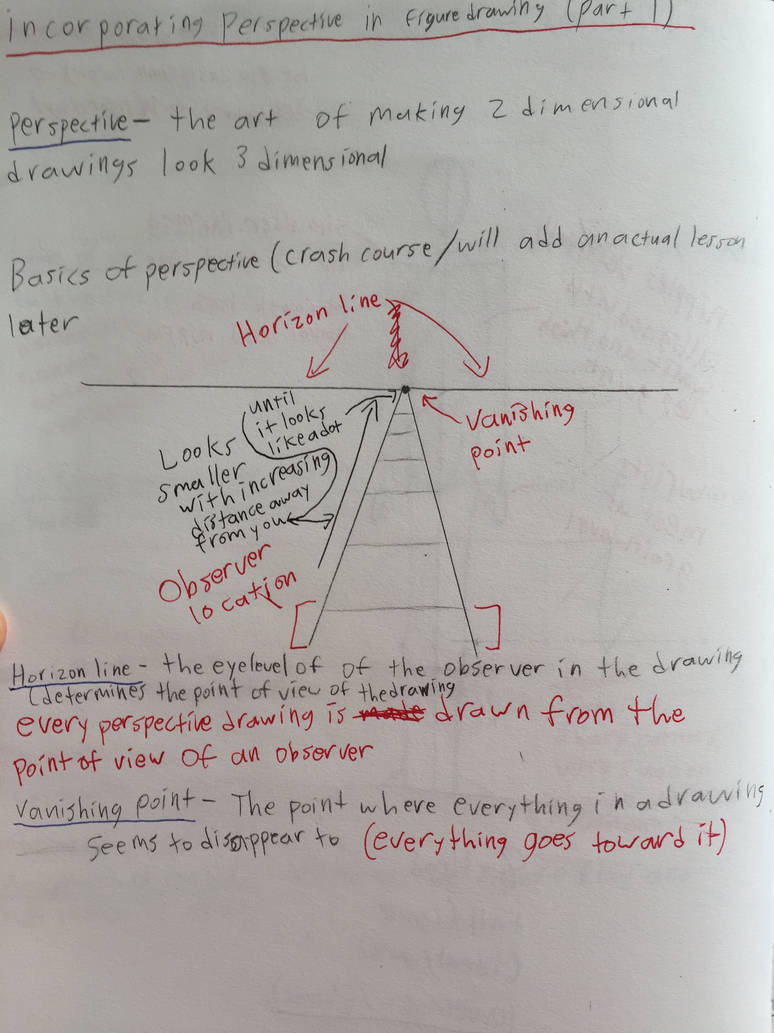 incorporating Perspective in Figure drawing (Part 1)
Perspective - the art of making 2 dimensional
drawings look 3 dimensional
Basics of perspective (crash course/will add an actual lesson
later
Horizon line
until
it looks
like a dot
Looks
smaller
with increasing
distance away
from you
Vanishing
point
Observer
location
Horizon line - the eyelevel of of the observer in the drawing
(determines the point of view of the drawing
every perspective drawing is made drawn from the
point of view of an observer
Vanishing point - The point where everything in a drawing
seems to disappear to (everything goes toward it)